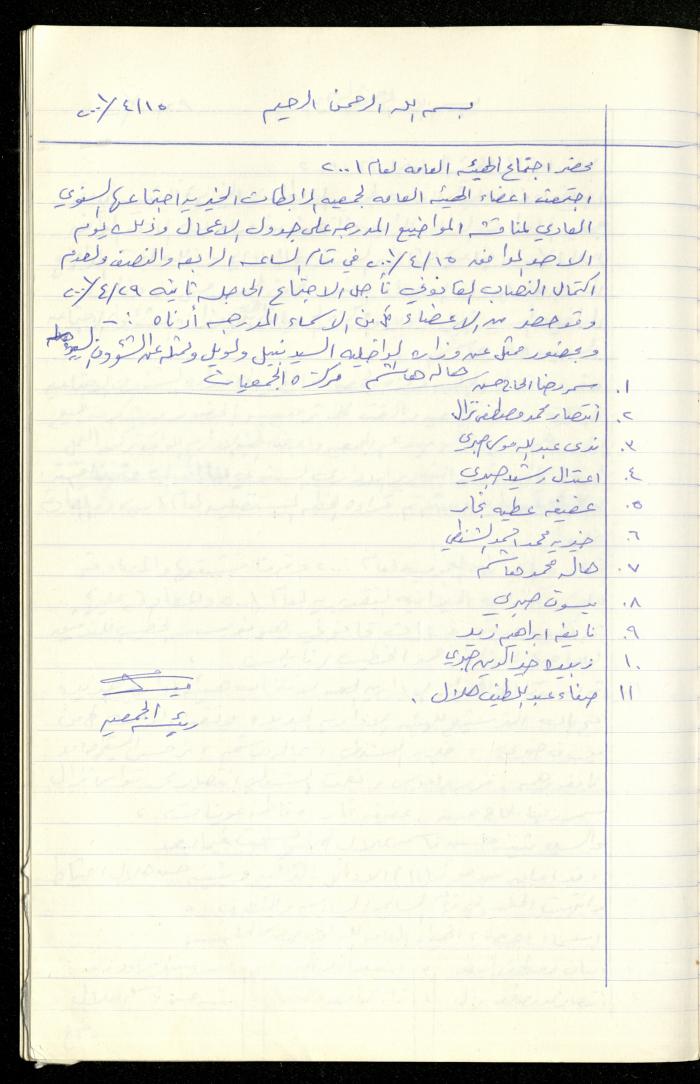 بسم الله الرحمن الرحيم ٢٠٠١/٤/١٥
محضر اجتماع الهيئه العامه لعام ٢٠٠١
اجتمعت اعضاء الهيئه العامه لجمعيه الرابطات الخيريه اجتماعها السنوي
العادي لمناقشه المواضيع المدرجه على جدول الاعمال وذلك يوم
الاحد الموافق ٢٠٠١/٤/١٥ في تمام الساعه الرابعه والنصف ولعدم
اكتمال النصاب القانوني تأجل الاجتماع الى ٢٠٠١/٤/٢٩
وقد حضر من الاعضاء الاسماء المدرجه أدناه :-
وبحضور ممثل عن وزارة الداخليه السيد نبيل وممثله عن الشؤون السيده
هاله هاشم مركزة الجمعيات
١. سمر رضا الحاج حسن
٢. انتصار محمد مصطفى نزال
٣. ندى عبدالله موسى صبري
٤. اعتدال رشيد صبري
٥. عفيفه عطيه نجار
٦. خيريه محمد احمد الشنطي
٧. هاله محمد هاشم
٨. ميسون صبري
٩. نايفه ابراهيم زيد
١٠. زبيده خير الدين صبري
١١. صفاء عبد اللطيف هلال.
رئيسة الجمعيه